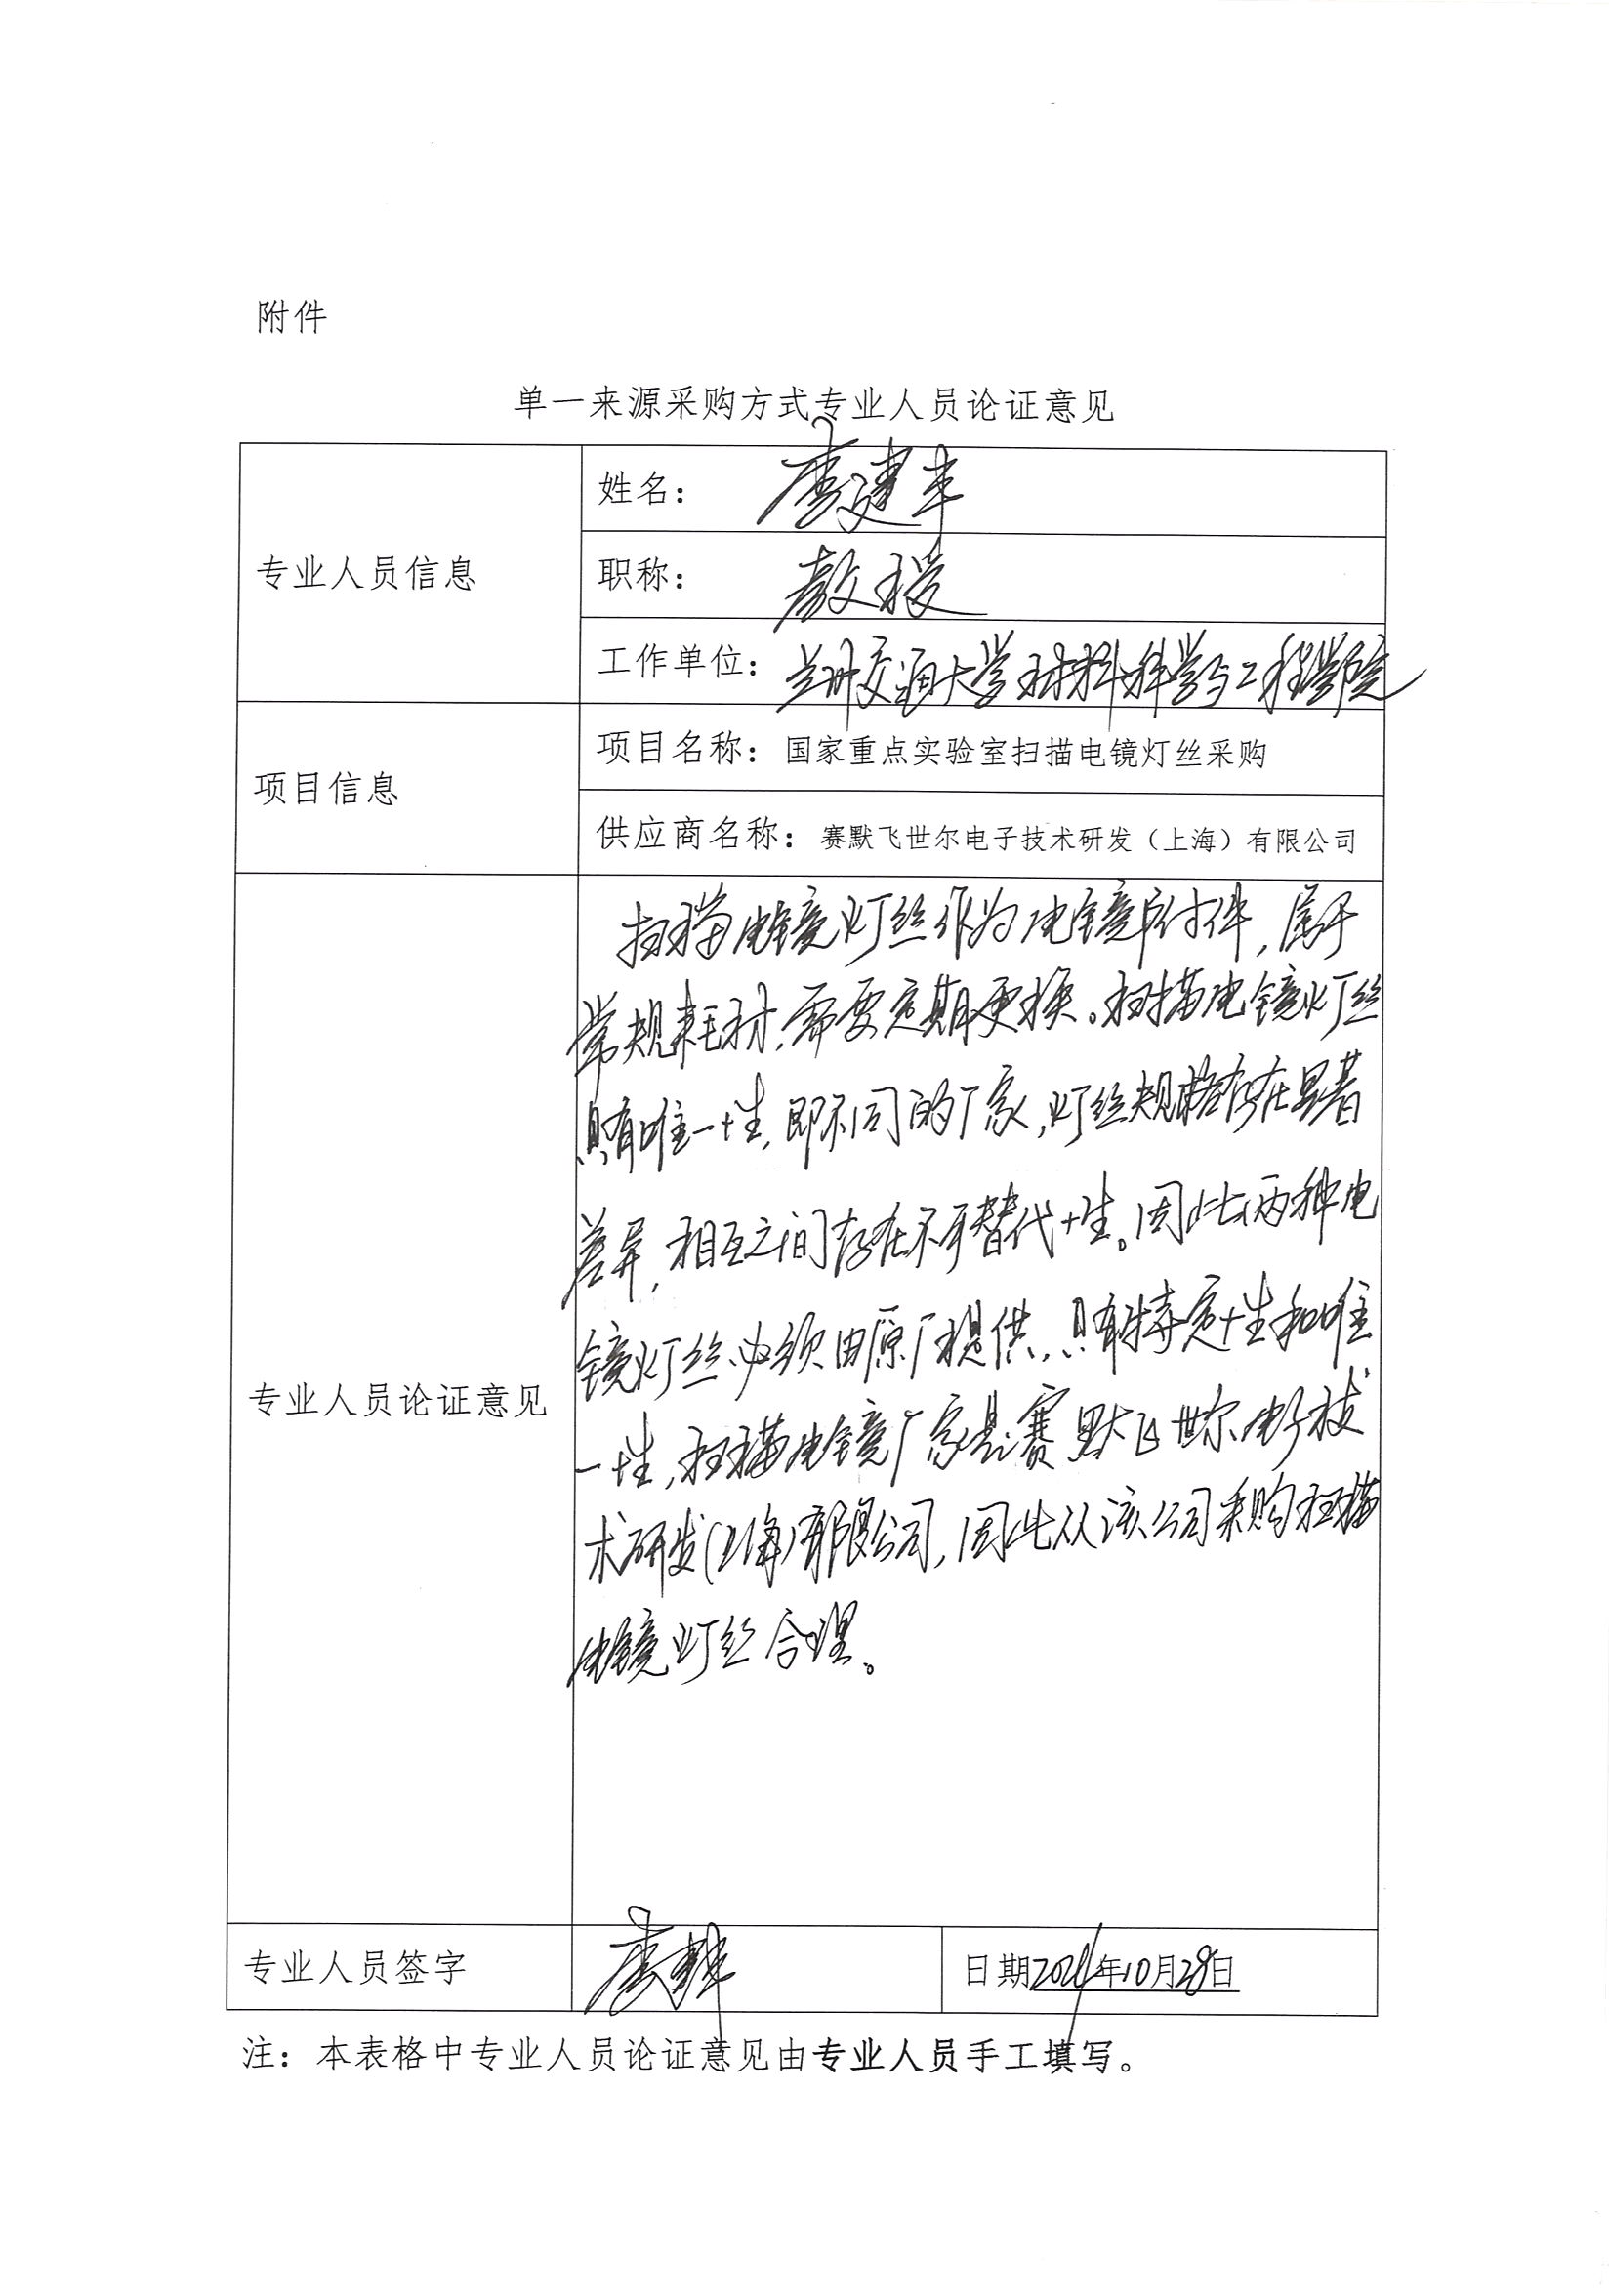 附件
单一来源采购方式专业人员论证意见
专业人员信息
姓名： 建丰
职称： 教授
工作单位： 兰州交通大学材料科学与工程学院
项目信息
项目名称：国家重点实验室扫描电镜灯丝采购
供应商名称：赛默飞世尔电子技术研发（上海）有限公司
专业人员论证意见
扫描电镜灯丝作为电镜附件，属于
常规耗材，需要定期更换。扫描电镜灯丝
具有唯一性，即不同的厂家，灯丝规格存在显著
差异，相互之间存在不可替代性。因此两种电
镜灯丝必须由原厂提供，具有特定性和唯
一性，扫描电镜厂家是赛默飞世尔电子技
术研发（上海）有限公司，因此从该公司采购扫描
电镜灯丝合理。
专业人员签字
日期2024年10月28日
注：本表格中专业人员论证意见由专业人员手工填写。